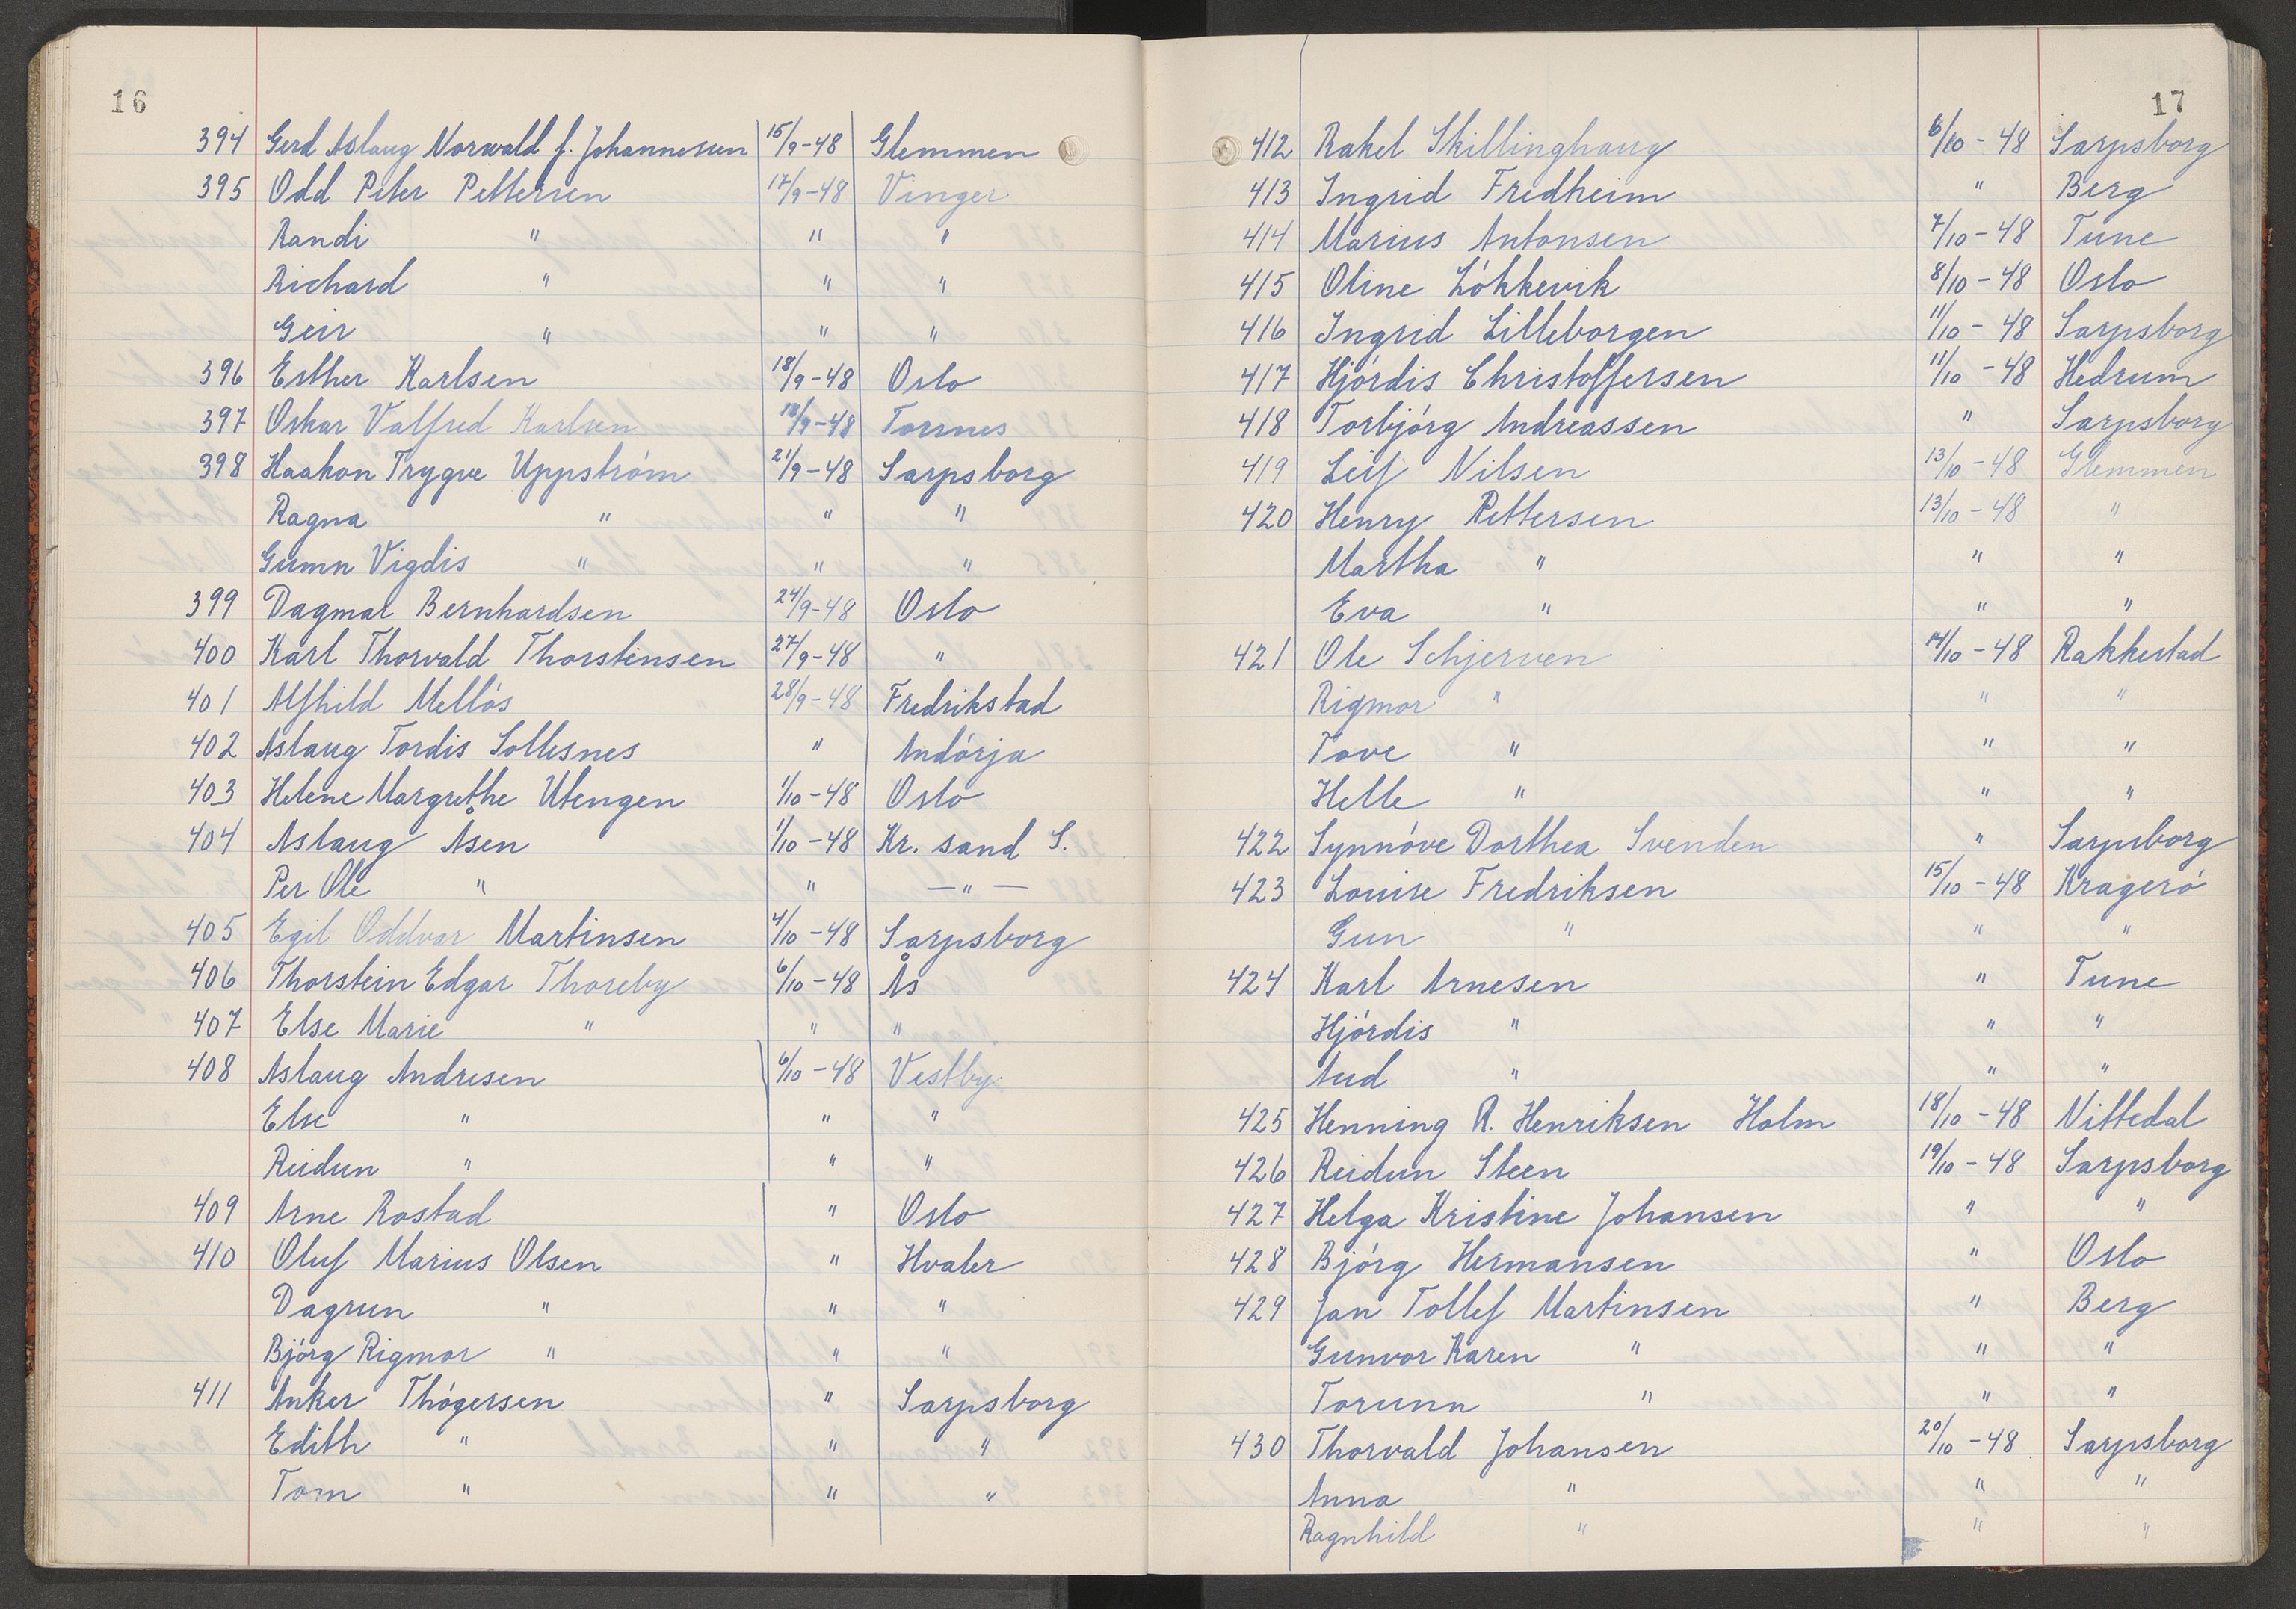 16
394 Gerd Aslaug Norwald f. Johannesen 15/9-48 Glemmen
395 Odd Peter Pettersen 17/9-48 Vinger
Randi " " "
Richard " " "
Geir " " "
396 Esther Karlsen 18/9-48 Oslo
397 Oskar Valfred Karlsen 18/9-48 Torsnes
398 Haakon Trygve Uppström 21/9-48 Sarpsborg
Ragna " " "
Gunn Vigdis " " "
399 Dagmar Bernhardsen 24/9-48 Oslo
400 Karl Thorvald Thorstensen 27/9-48 "
401 Alfhild Mellös 28/9-48 Fredrikstad
402 Aslaug Tordis Sollesnes " Andörja
403 Helene Margrethe Utengen 1/10-48 Oslo
404 Aslaug Åsen 1/10-48 Kr. sand S.
Per Ole " " — " —
405 Egil Oddvar Martinsen 4/10-48 Sarpsborg
406 Thorstein Edgar Thoreby 6/10-48 Ås
407 Else Marie " " "
408 Aslaug Andresen 6/10-48 Vestby
Else " " "
Reidun " " "
409 Arne Rostad " Oslo
410 Oluf Marius Olsen " Hvaler
Dagrun " " "
Björg Rigmor " " "
411 Anker Thögersen " Sarpsborg
Edith " " "
Tom " " "
17
412 Rakel Skillinghaug 6/10-48 Sarpsborg
413 Ingrid Fredheim " Berg
414 Marius Antonsen 7/10-48 Tune
415 Oline Lökkevik 8/10-48 Oslo
416 Ingrid Lilleborgen 11/10-48 Sarpsborg
417 Hjördis Christoffersen 11/10-48 Hedrum
418 Torbjörg Andreassen " Sarpsborg
419 Leif Nilsen 13/10-48 Glemmen
420 Henry Pettersen 13/10-48 "
Martha " " "
Eva " " "
421 Ole Schjerven 14/10-48 Rakkestad
Rigmor " " "
Tove " " "
Helle " " "
422 Synnöve Dorthea Svenden " Sarpsborg
423 Louise Fredriksen 15/10-48 Kragerö
Gun " " "
424 Karl Arnesen " Tune
Hjördis " " "
Aud " " "
425 Henning R. Henriksen Holm 18/10-48 Nittedal
426 Reidun Steen 19/10-48 Sarpsborg
427 Helga Kristine Johansen " "
428 Björg Hermansen " Oslo
429 Jan Tollef Martinsen " Berg
Gunvor Karen " " "
Torunn " " "
430 Thorvald Johansen 20/10-48 Sarpsborg
Anna " " "
Ragnhild " " "